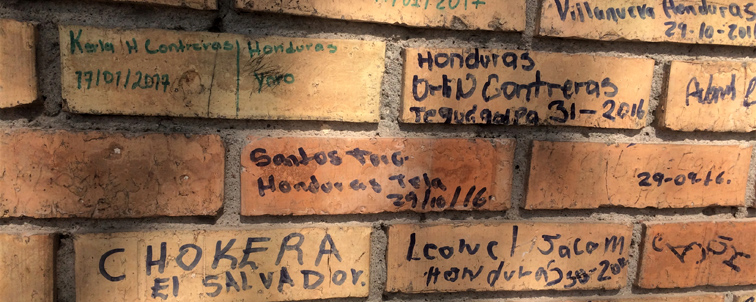 /01/2017
Villanueva Honduras
29-10-2016
Karla H Contreras | Honduras
17/01/2017. Yoro
Honduras
Contreras
Tegucigalpa 31-2016
Santos
Honduras Tela
29/10/16.
29-09-16.
CHOKERA
El SALVADOR.
Leonel Jacom
HONDURAS